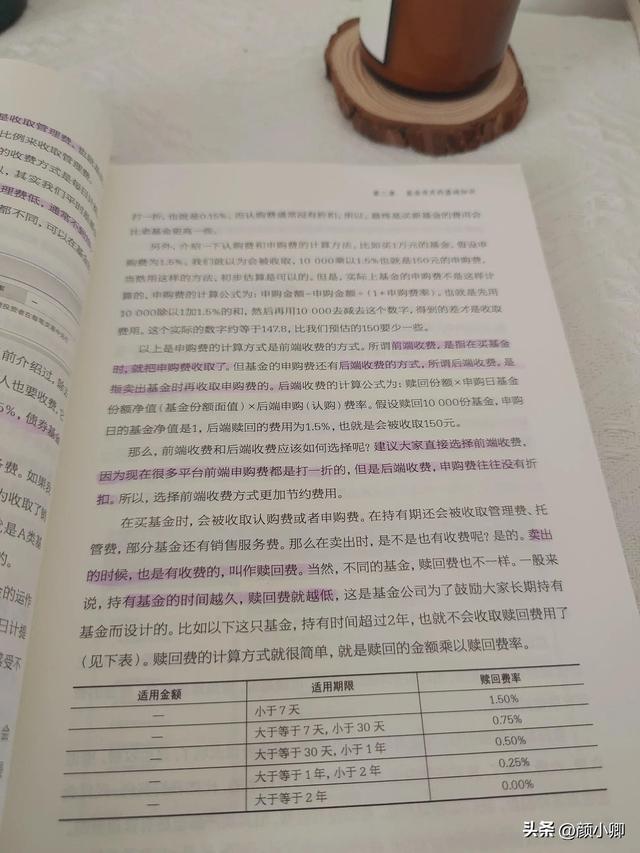 是收取管理费,
比例来收取管理费。
的收费方式是每日
以,其实我们平时
理费低,通常不
都不同,可以在基金
率
前介绍过,除
人也要收费,它
5%,债券基金
务费。如果我
为收取了销
就是A类基
的。
金的运作
日计提
感受不
会
第二章 基金有关的基础知识
打一折,也就是0.15%。而认购费通常没有折扣。所以,最终是买新基金的费用会
比老基金更高一些。
另外,介绍一下认购费和申购费的计算方法。比如买1万元的基金,假设申
购费为1.5%,我们就以为会被收取,10 000乘以1.5%也就是150元的申购费。
当然用这样的方法,初步估算是可以的。但是,实际上基金的申购费不是这样计
算的。申购费的计算公式为:申购金额-申购金额÷(1+申购费率)。也就是先用
10 000除以1加1.5%的和,然后再用10 000去减去这个数字,得到的差才是收取
费用。这个实际的数字约等于147.8,比我们预估的150要少一些。
以上是申购费的计算方式是前端收费的方式。所谓前端收费,是指在买基金
时,就把申购费收取了。但基金的申购费还有后端收费的方式,所谓后端收费,是
指卖出基金时再收取申购费的。后端收费的计算公式为:赎回份额×申购日基金
份额净值(基金份额面值)×后端申购(认购)费率。假设赎回10 000份基金,申购
日的基金净值是1,后端赎回的费用为1.5%,也就是会被收取150元。
那么,前端收费和后端收费应该如何选择呢?建议大家直接选择前端收费,
因为现在很多平台前端申购费都是打一折的,但是后端收费,申购费往往没有折
扣。所以,选择前端收费方式更加节约费用。
在买基金时,会被收取认购费或者申购费。在持有期还会被收取管理费、托
管费,部分基金还有销售服务费。那么在卖出时,是不是也有收费呢?是的。卖出
的时候,也是有收费的,叫作赎回费。当然,不同的基金,赎回费也不一样。一般来
说,持有基金的时间越久,赎回费就越低,这是基金公司为了鼓励大家长期持有
基金而设计的。比如以下这只基金,持有时间超过2年,也就不会收取赎回费用了
(见下表)。赎回费的计算方式就很简单,就是赎回的金额乘以赎回费率。
适用金额 适用期限 赎回费率
— 小于7天 1.50%
— 大于等于7天,小于30天 0.75%
— 大于等于30天,小于1年 0.50%
— 大于等于1年,小于2年 0.25%
— 大于等于2年 0.00%
头条 @颜小卿